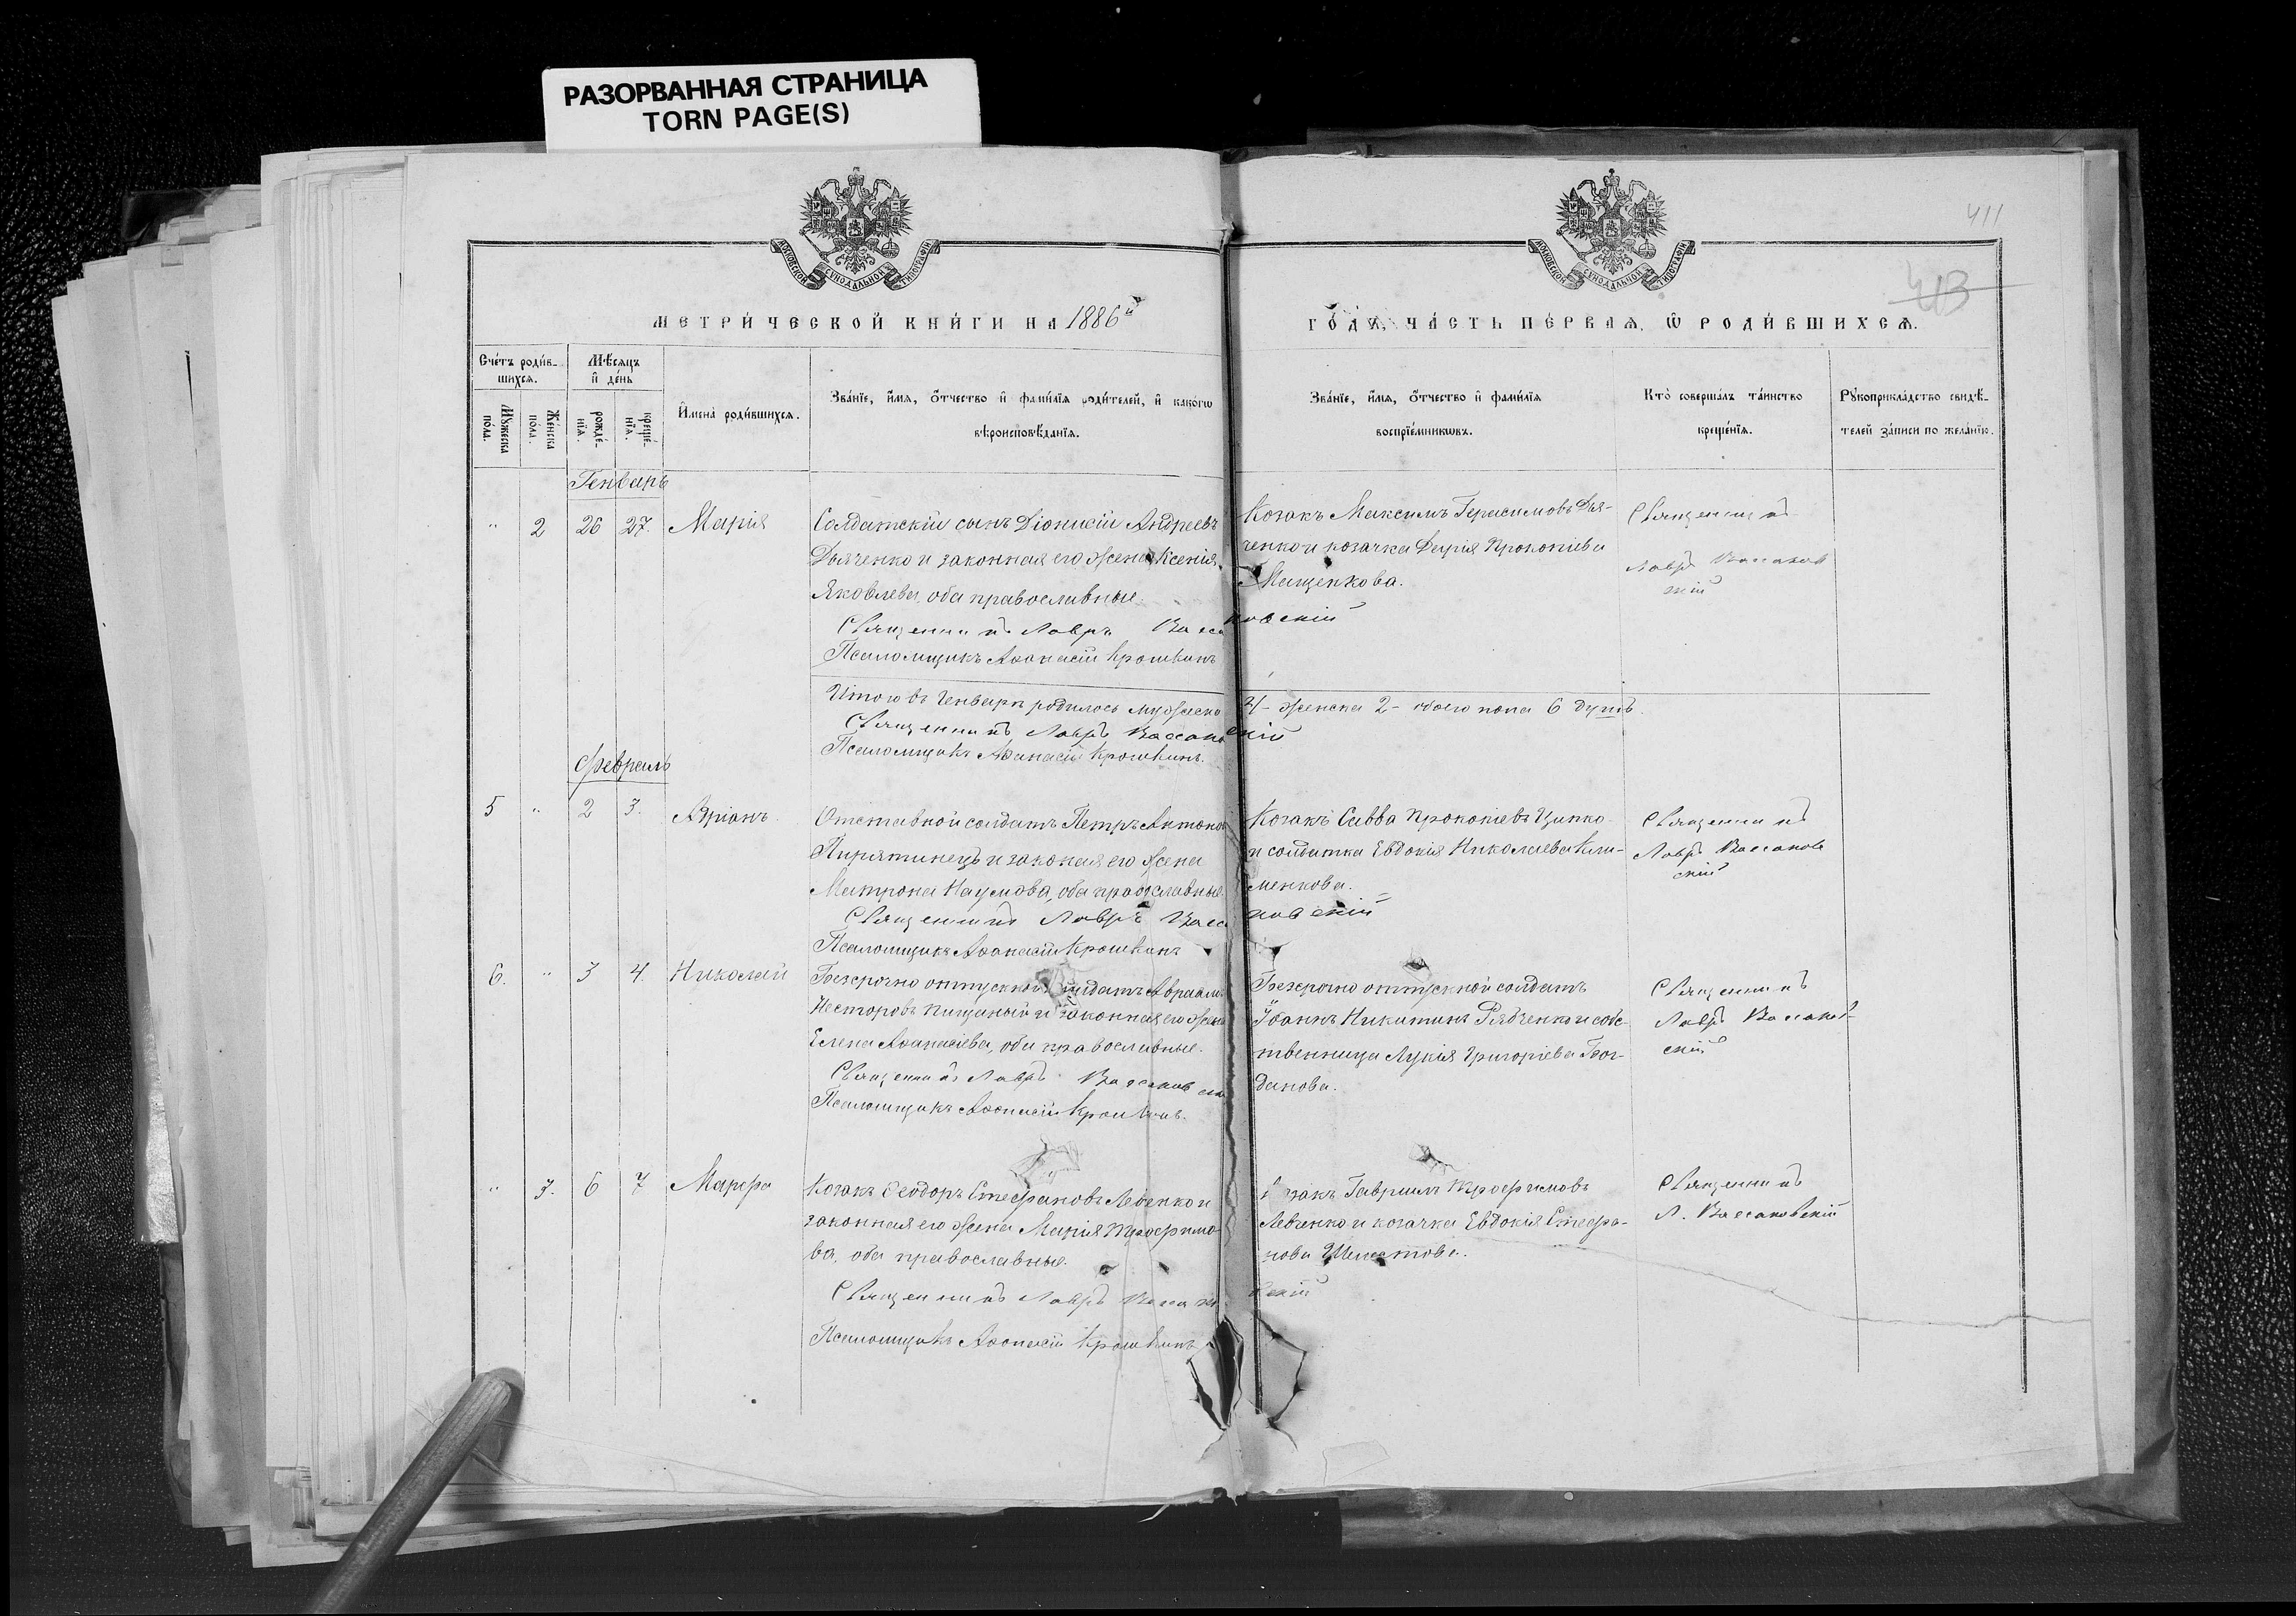 РАЗОРВАННАЯ СТРАНИЦА
TORN PAGE(S)
411
413
МОСКОВСКОЙ СѴНОДАЛЬНОЙ ТИПОГРАФІИ
МОСКОВСКОЙ СѴНОДАЛЬНОЙ ТИПОГРАФІИ
МЕТРИ́ЧЕСКОЙ КНИ́ГИ НА 1886й
ГО́ДЪ, ЧА́СТЬ ПЕ́РВАЯ, Ѡ РОДИ́ВШИХСЯ.
Сче́тъ роди́в-
шихся.
Мѣ́сяцъ
и҆ де́нь
Му́жеска
по́ла.
Же́нска
по́ла.
рожде́-
нїя.
креще́-
нїя.
И҆мена̀ роди́вшихся.
Зва́нїе, и҆́мя, ѻ҆́тчество и҆ фами́лїя роди́телей, и҆ како́гѡ
вѣроисповѣ́данїя.
Зва́нїе, и҆́мя, ѻ҆́тчество и҆ фами́лїя
воспрїе́мникѡвъ.
Кто̀ соверша́лъ та́инство
креще́нїя.
Рꙋкоприкла́дство свидѣ́-
телей за́писи по жела́нїю.
Генварь
" 2 26 27. Марія
Солдатскій сынъ Діонисій Андреевъ
Дьяченко и законная его жена Ксенія
Яковлева, оба православные.
Священникъ Лавръ Вассановскій
Псаломщикъ Аѳанасій Крошкинъ
Козакъ Максимъ Герасимовъ Дья-
ченко и козачка Дарія Прокопіева
Мащенкова.
Священникъ
Лавръ Вассанов
скій
Итого въ Генварѣ родилось мужеска 4 - женска 2 - обоего пола 6 душъ.
Священникъ Лавръ Вассановскій
Псаломщикъ Аѳанасій Крошкинъ.
Февраль
5 " 2 3. Адріанъ.
Отставной солдатъ Петръ Антоновъ
Пирятинецъ и законая его жена
Матрона Наумова, оба православные.
Священникъ Лавръ Вассановскій
Псаломщикъ Аѳанасій Крошкинъ
Козакъ Савва Прокопіевъ Ципко
и солдатка Евдокія Николаева Кли-
менкова.
Священникъ
Лавръ Вассанов
скій
6. " 3 4. Николай
Безсрочно отпускной солдатъ Авраамъ
Несторовъ Пищаный и законная его жена
Елена Аѳанасіева, оба православные.
Священникъ Лавръ Вассановскій
Псаломщикъ Аѳанасій Крошкинъ.
Безсрочно отпускной солдатъ
Іоаннъ Никитинъ Рябченко и собс-
твенница Лукія Григоріева Бог-
данова.
Священникъ
Лавръ Вассанов-
скій
" 3. 6 7 Марѳа
Козакъ Ѳеодоръ Стефановъ Левченко и
законная его жена Марія Трофимо-
ва, оба православные.
Священникъ Лавръ Вассановскій
Псаломщикъ Аѳанасій Крошкинъ
Козакъ Гавріилъ Трофимовъ
Левченко и козачка Евдокія Стефа-
нова Шпактова.
Священникъ
Л. Вассановскій